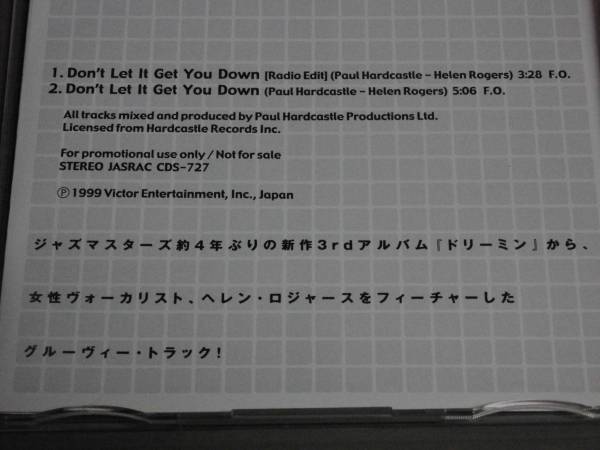 1. Don't Let It Get You Down [Radio Edit] (Paul Hardcastle – Helen Rogers) 3:28 F.O.
2. Don't Let It Get You Down (Paul Hardcastle – Helen Rogers) 5:06 F.O.
All tracks mixed and produced by Paul Hardcastle Productions Ltd.
Licensed from Hardcastle Records Inc.
For promotional use only / Not for sale
STEREO JASRAC CDS-727
Ⓟ 1999 Victor Entertainment, Inc., Japan
ジャズマスターズ約4年ぶりの新作3rdアルバム『ドリーミン』から、
女性ヴォーカリスト、ヘレン・ロジャースをフィーチャーした
グルーヴィー・トラック!